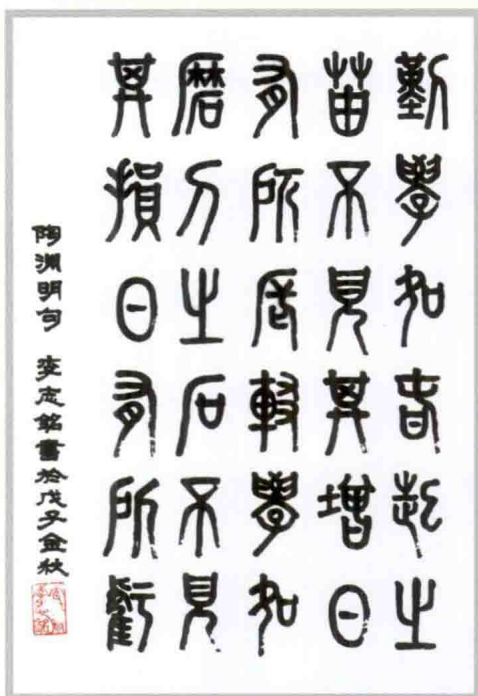 勤學如春起之
苗不見其增日
有所長輟學如
磨刀之石不見
其損日有所虧
陶淵明句 李志銘書於戊子金秋